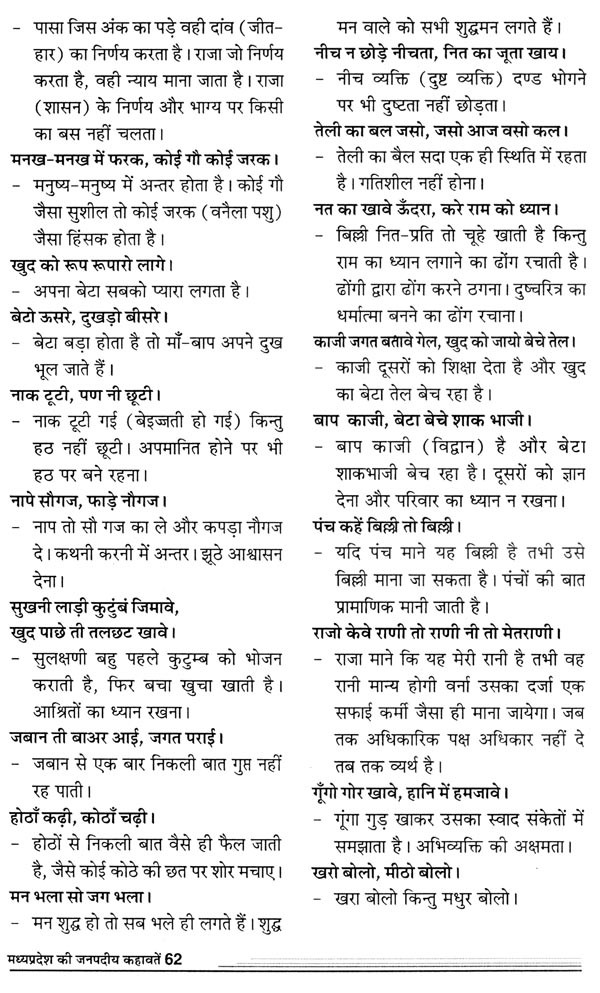 – पासा जिस अंक का पड़े वही दांव (जीत-
हार) का निर्णय करता है। राजा जो निर्णय
करता है, वही न्याय माना जाता है। राजा
(शासन) के निर्णय और भाग्य पर किसी
का बस नहीं चलता।
मनख-मनख में फरक, कोई गौ कोई जरक।
– मनुष्य-मनुष्य में अन्तर होता है। कोई गौ
जैसा सुशील तो कोई जरक (वनैला पशु)
जैसा हिंसक होता है।
खुद को रूप रूपारो लागे।
– अपना बेटा सबको प्यारा लगता है।
बेटो ऊसरे, दुखड़ो बीसरे।
– बेटा बड़ा होता है तो माँ-बाप अपने दुख
भूल जाते हैं।
नाक टूटी, पण नी छूटी।
– नाक टूटी गई (बेइज्जती हो गई) किन्तु
हठ नहीं छूटी। अपमानित होने पर भी
हठ पर बने रहना।
नापे सौगज, फाड़े नौगज।
– नाप तो सौ गज का ले और कपड़ा नौगज
दे। कथनी करनी में अन्तर। झूठे आश्वासन
देना।
सुखनी लाड़ी कुटुंबं जिमावे,
खुद पाछे ती तलछट खावे।
– सुलक्षणी बहु पहले कुटुम्ब को भोजन
कराती है, फिर बचा खुचा खाती है।
आश्रितों का ध्यान रखना।
जबान ती बाअर आई, जगत पराई।
– जबान से एक बार निकली बात गुप्त नहीं
रह पाती।
होठाँ कढ़ी, कोठाँ चढ़ी।
– होठों से निकली बात वैसे ही फैल जाती
है, जैसे कोई कोठे की छत पर शोर मचाए।
मन भला सो जग भला।
– मन शुद्ध हो तो सब भले ही लगते हैं। शुद्ध
मन वाले को सभी शुद्धमन लगते हैं।
नीच न छोड़े नीचता, नित का जूता खाय।
– नीच व्यक्ति (दुष्ट व्यक्ति) दण्ड भोगने
पर भी दुष्टता नहीं छोड़ता।
तेली का बल जसो, जसो आज वसो कल।
– तेली का बैल सदा एक ही स्थिति में रहता
है। गतिशील नहीं होना।
नत का खावे ऊँदरा, करे राम को ध्यान।
– बिल्ली नित-प्रति तो चूहे खाती है किन्तु
राम का ध्यान लगाने का ढोंग रचाती है।
ढोंगी द्वारा ढोंग करने ठगना। दुष्चरित्र का
धर्मात्मा बनने का ढोंग रचाना।
काजी जगत बतावे गेल, खुद को जायो बेचे तेल।
– काजी दूसरों को शिक्षा देता है और खुद
का बेटा तेल बेच रहा है।
बाप काजी, बेटा बेचे शाक भाजी।
– बाप काजी (विद्वान) है और बेटा
शाकभाजी बेच रहा है। दूसरों को ज्ञान
देना और परिवार का ध्यान न रखना।
पंच कहें बिल्ली तो बिल्ली।
– यदि पंच माने यह बिल्ली है तभी उसे
बिल्ली माना जा सकता है। पंचों की बात
प्रामाणिक मानी जाती है।
राजो केवे राणी तो राणी नी तो मेतराणी।
– राजा माने कि यह मेरी रानी है तभी वह
रानी मान्य होगी वर्ना उसका दर्जा एक
सफाई कर्मी जैसा ही माना जायेगा। जब
तक अधिकारिक पक्ष अधिकार नहीं दे
तब तक व्यर्थ है।
गूँगो गोर खावे, हानि में हमजावे।
– गूंगा गुड़ खाकर उसका स्वाद संकेतों में
समझाता है। अभिव्यक्ति की अक्षमता।
खरो बोलो, मीठो बोलो।
– खरा बोलो किन्तु मधुर बोलो।
मध्यप्रदेश की जनपदीय कहावतें 62